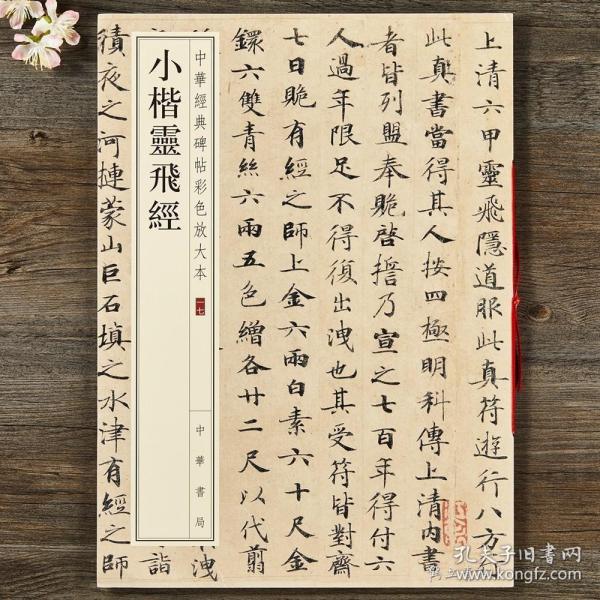 上清六甲靈飛隱道服此真符遊行八方行
此真書當得其人按四極明科傳上清内書
者皆列盟奉貺啓誓乃宣之七百年得付六
人過年限足不得復出洩也其受符皆對齋
七日貺有經之師上金六兩白素六十尺金
鐶六雙青絲六兩五色繒各廿二尺以代翦
洩
中華經典碑帖彩色放大本
一七
中華書局
小楷靈飛經
誥
積夜之河揵蒙山巨石填之水津有經之師
孔夫子旧书网
www.kongfz.com